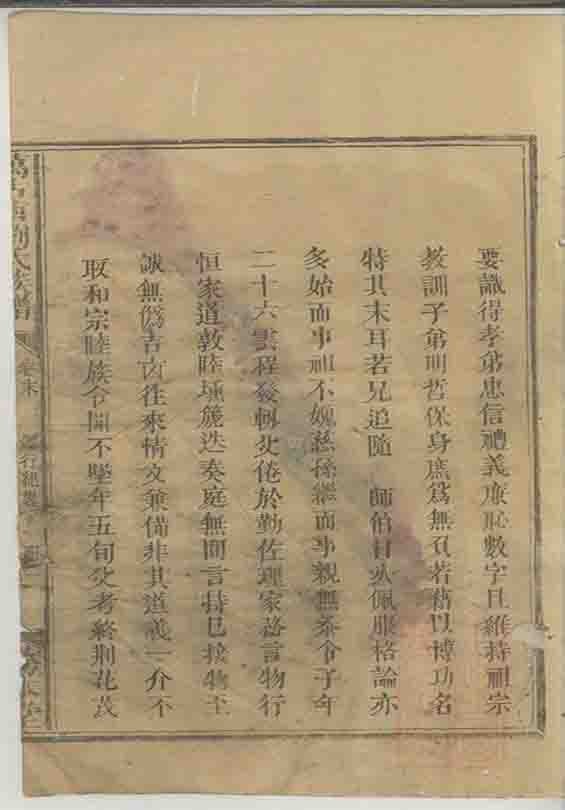 要識得孝弟忠信禮義廉恥數字且維持祖宗
教訓子弟明哲保身庶為無忝若藉以博功名
特其末耳若兄追隨 師伯日久佩服格論亦
多始而事祖不媿慈孫繼而事親無忝令子年
二十六雲程發軔父倦於勤佐理家務言物行
恒家道敦睦壎篪迭奏庭無間言待己接物主
誠無偽吉凶往來情文兼備非其道義一介不
取和宗睦族令聞不墜年五旬父考終荊花茂
劉氏族譜 卷末 行紀